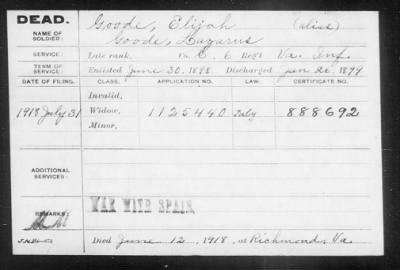 DEAD.
Goode, Elijah (alias)
NAME OF SOLDIER:
Goode, Lazarus
SERVICE:
Late rank, Co. C, 6 Reg't Va. Inf.
TERM OF SERVICE:
Enlisted June 30, 1898 Discharged Jan 26, 1899
DATE OF FILING. CLASS. APPLICATION NO. LAW. CERTIFICATE NO.
Invalid,
1918 July 31 Widow, 1125440 888692
Minor,
ADDITIONAL SERVICES:
WAR WITH SPAIN.
REMARKS:
Died June 12, 1918, at Richmond, Va.